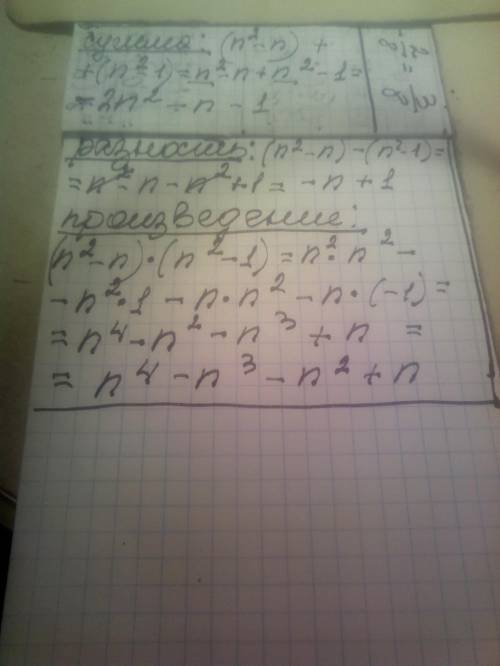 сумма: (n²-n) +
+(n²-1)=n²-n+n²-1=
=2n²-n-1
разность: (n²-n)-(n²-1)=
=n²-n-n²+1=-n+1
произведение:
(n²-n)·(n²-1)=n²·n²-
-n²·1-n·n²-n·(-1)=
=n⁴-n²-n³+n =
= n⁴-n³-n²+n